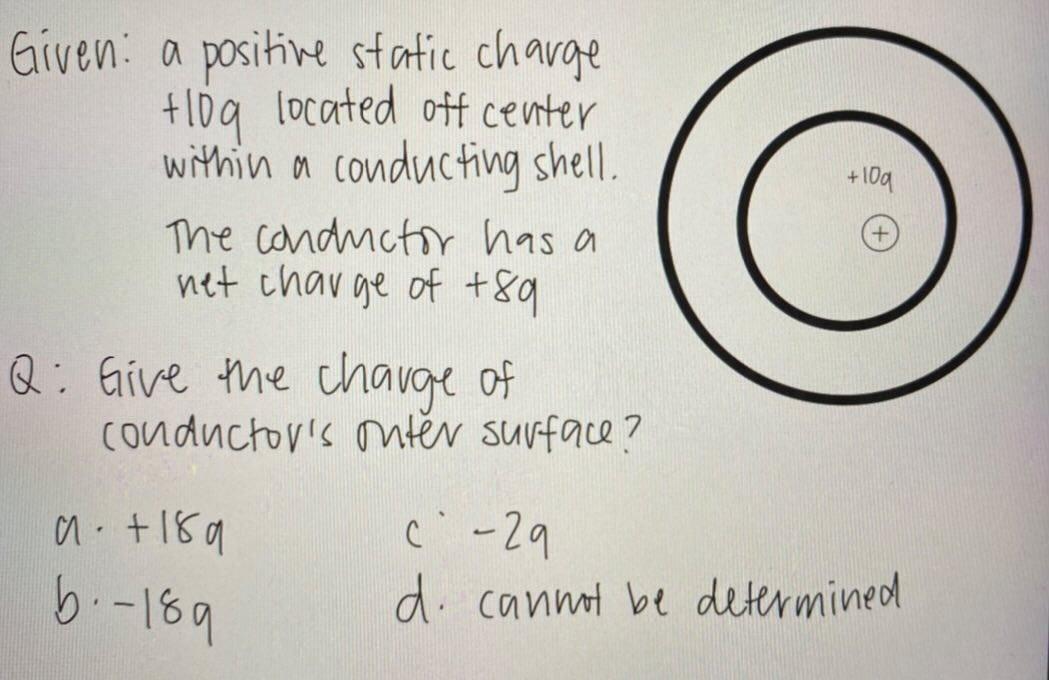 Given: a positive static charge
+10q located off center
within a conducting shell.
The conductor has a
net charge of +8q
+10q
+
Q: Give the charge of
conductor's outer surface?
a. +18q
c. -2q
b. -18q
d. cannot be determined